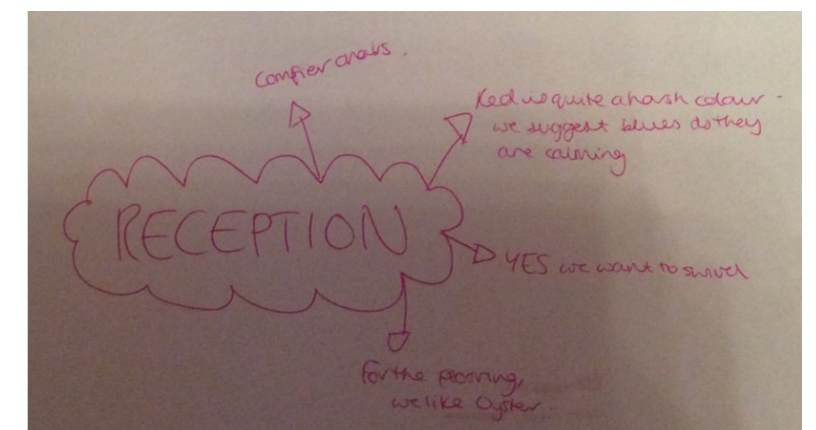 Comfier chairs.
Red is quite a harsh colour -
we suggest blues as they
are calming
RECEPTION
YES we want to swivel
For the flooring,
we like Oyster.